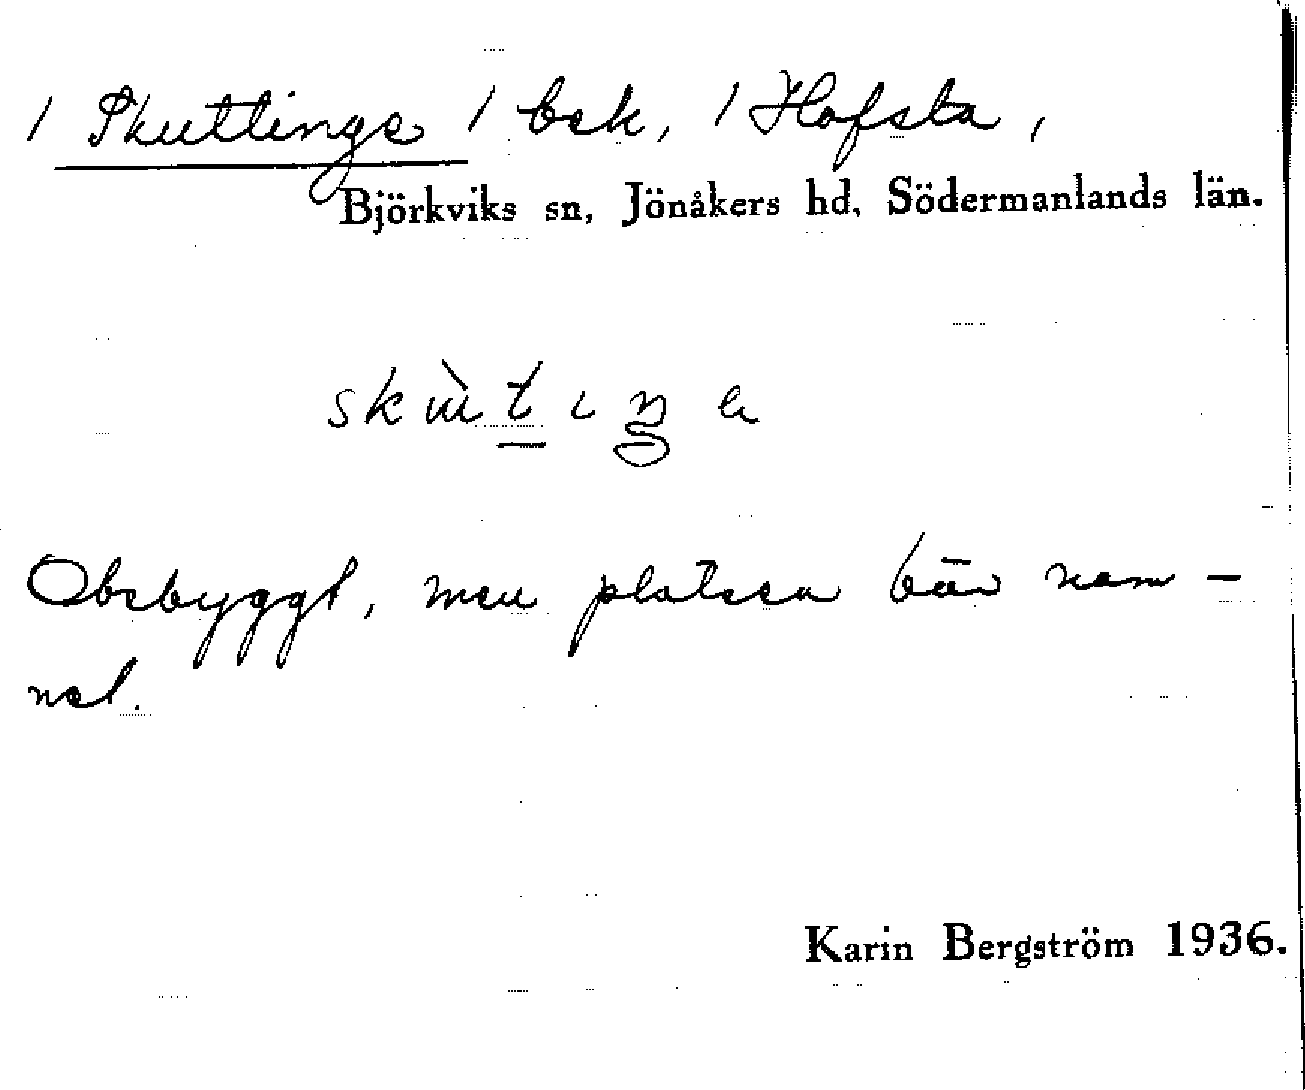 / Skuttinge / bsk, / Hofsta,
Björkviks sn, Jönåkers hd, Södermanlands län.
Obebyggt, men platsen bär nam-
net.
Karin Bergström 1936.